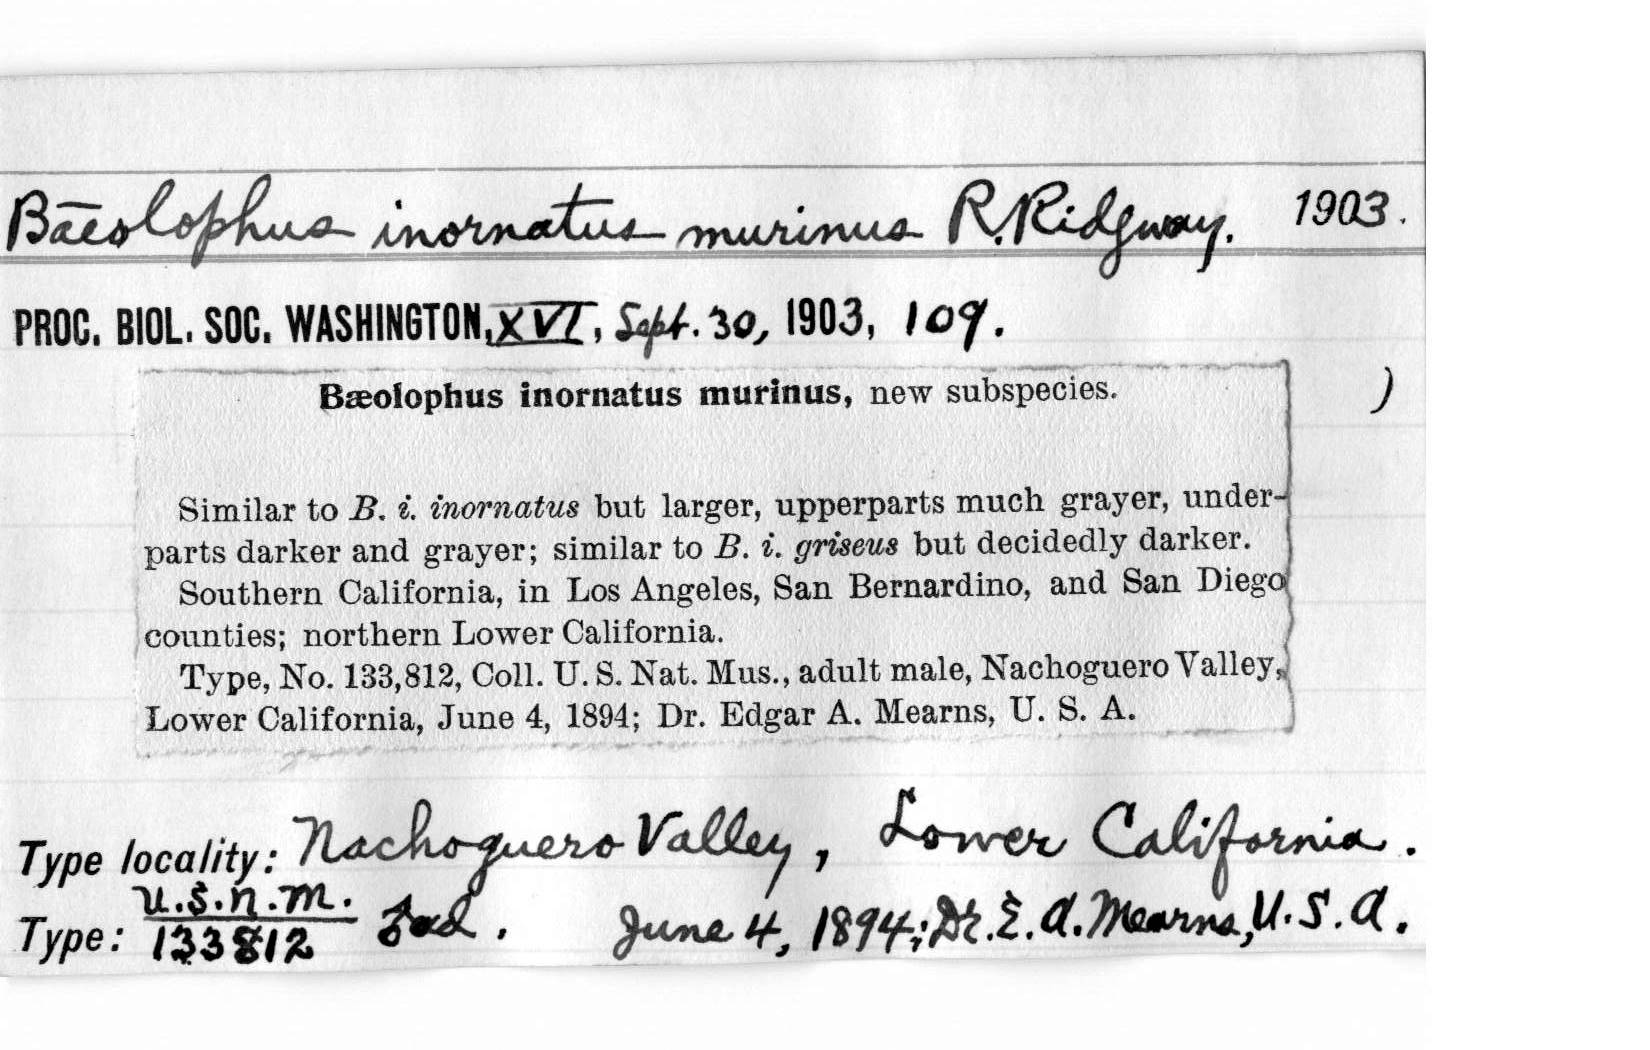 Baeolophus inornatus murinus R. Ridgway. 1903.
PROC. BIOL. SOC. WASHINGTON, XVI, Sept. 30, 1903, 109.
Bæolophus inornatus murinus, new subspecies. )
Similar to B. i. inornatus but larger, upperparts much grayer, under-
parts darker and grayer; similar to B. i. griseus but decidedly darker.
Southern California, in Los Angeles, San Bernardino, and San Diego
counties; northern Lower California.
Type, No. 133,812, Coll. U. S. Nat. Mus., adult male, Nachoguero Valley,
Lower California, June 4, 1894; Dr. Edgar A. Mearns, U. S. A.
Type locality: Nachoguero Valley, Lower California.
Type: U.S.N.M.
133812 ♂ad. June 4, 1894; Dr. E. A. Mearns, U. S. A.